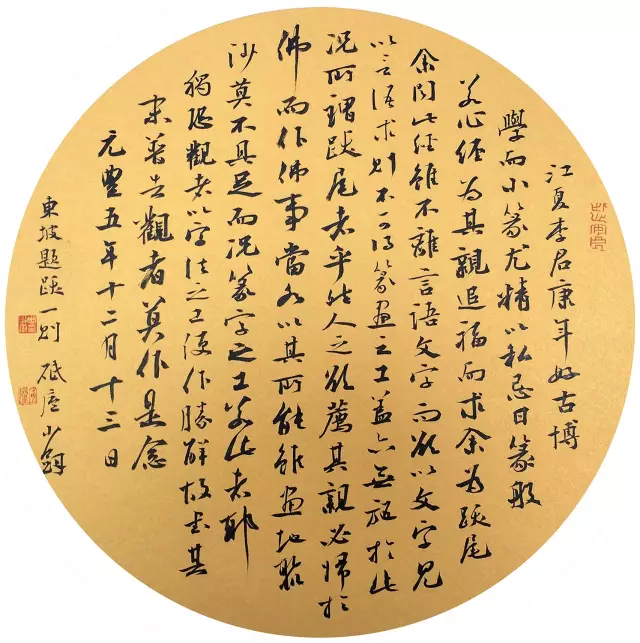 江夏李君康年好古博
學而小篆尤精以私忌日篆般
若心經為其親追福而求余為跋尾
余聞此經雖不離言語文字而欲以文字見
以言語求則不可得篆畫之工蓋亦無施於此
況所謂跋尾者乎然人之欲薦其親必歸於
佛而作佛事當各以其所能雖畫地聚
沙莫不具足而況篆字之工若此者耶
獨恐觀者以字法之工便作勝解故書其
末普告觀者莫作是念
元豐五年十二月十三日
東坡題跋一則 砥廬